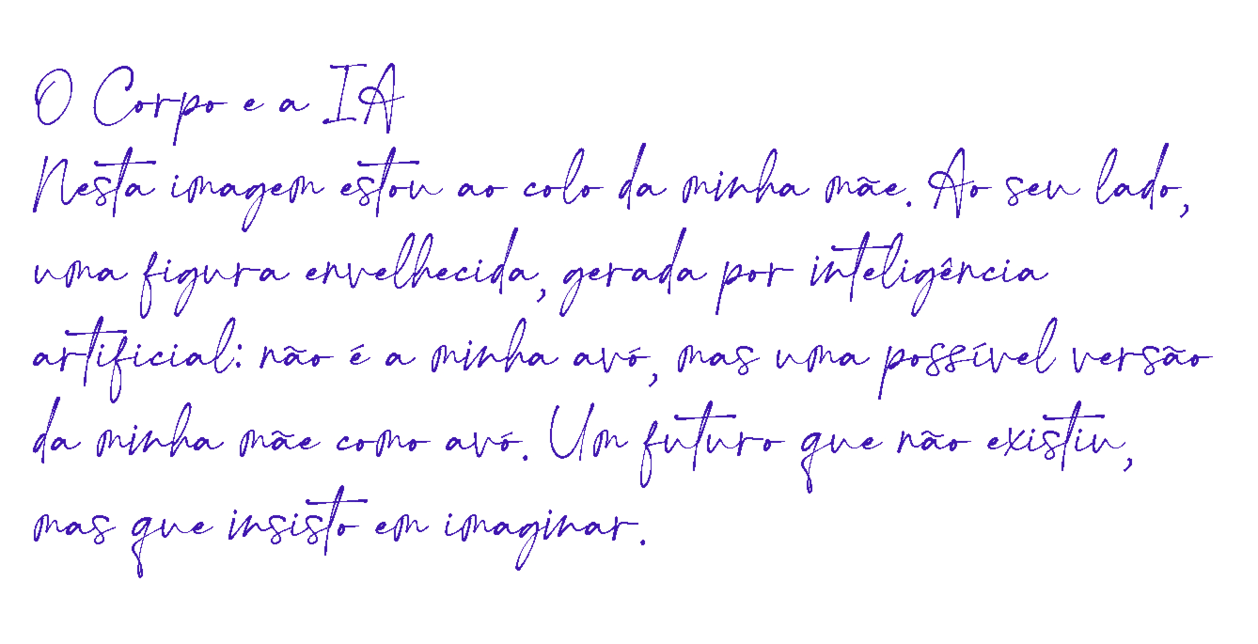 O Corpo e a IA
Nesta imagem estou ao colo da minha mãe. Ao seu lado,
uma figura envelhecida, gerada por inteligência
artificial: não é a minha avó, mas uma possível versão
da minha mãe como avó. Um futuro que não existiu,
mas que insisto em imaginar.